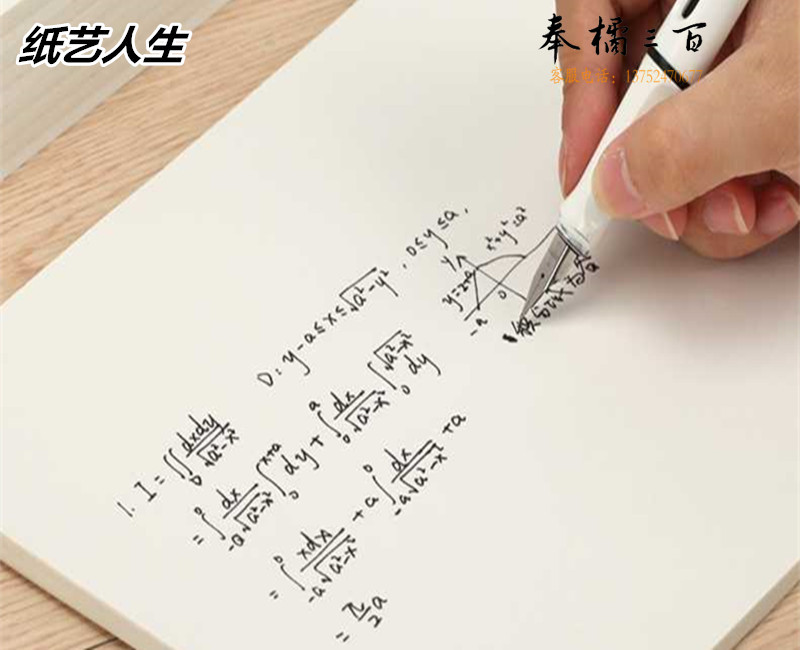 纸艺人生
奉橘三百
客服电话：13752470677
1. I = ∬_D dxdy/√(a²-x²)   D: y-a≤x≤√(a²-y²), 0≤y≤a,
= ∫_{-a}^0 dx/√(a²-x²) ∫_0^{x+a} dy + ∫_0^a dx/√(a²-x²) ∫_0^{√(a²-x²)} dy
= ∫_{-a}^0 xdx/√(a²-x²) + a∫_{-a}^0 dx/√(a²-x²) + a
= π/2 a
x²+y²=a²
y
y=x+a
-a
0